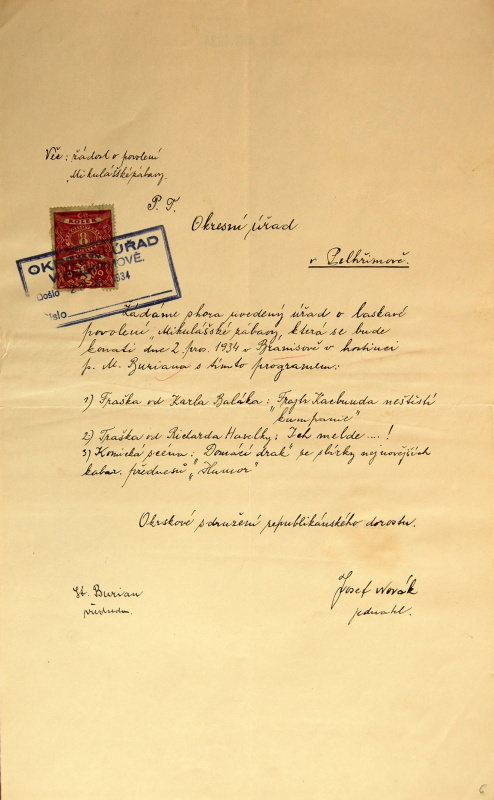 Věc: žádost o povolení
Mikulášské zábavy.
P. T.
Okresní úřad
v Pelhřimově.
KOLEK
OKRESNÍ ÚŘAD
V PELHŘIMOVĚ.
Došlo 1934
Číslo
Žádáme shora uvedený úřad o laskavé
povolení „Mikulášské zábavy, která se bude
konati dne 2. pros. 1934 v Branišově v hostinci
p. M. Buriana s tímto programem:
1) Fraška od Karla Baláka: „Frajtr Kacbunda neštěstí
kumpanie"
2) Fraška od Richarda Haselky: Ich melde ....!
3) Komická scéna: „Domácí drak" ze sbírky nejnovějších
kabar. přednesů „Humor"
Okrskové sdružení republikánského dorostu.
St. Burian
předseda.
Josef Novák
jednatel.
6